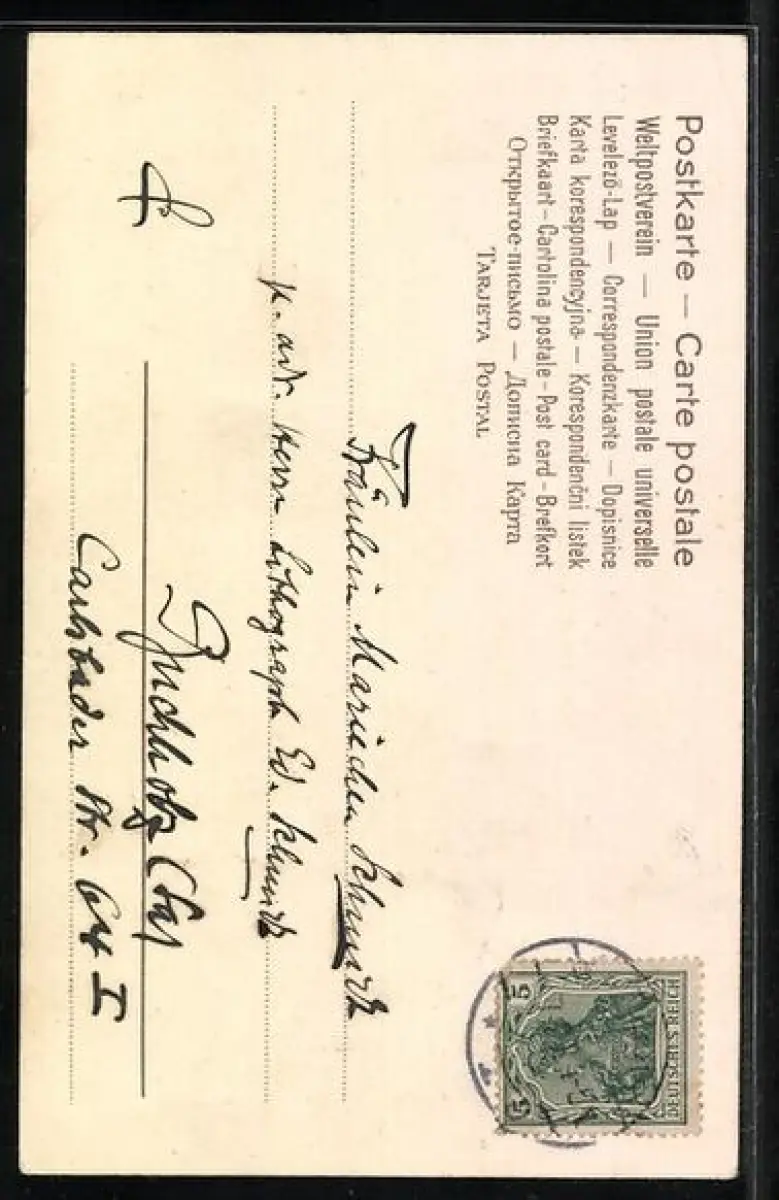 Postkarte — Carte postale
Weltpostverein — Union postale universelle
Levelező-Lap — Correspondenzkarte — Dopisnice
Karta korespondencyjna — Korespondenční lístek
Briefkaart - Cartolina postale - Post card - Brefkort
Открытое письмо — Дописна Карта
TARJETA POSTAL
DEUTSCHES REICH
5 5
Fräulein Mariechen Schmidt
p. adr. Herrn Lithograph Ed. Schmidt
Buchholz
Carlsbader Str. 64 I